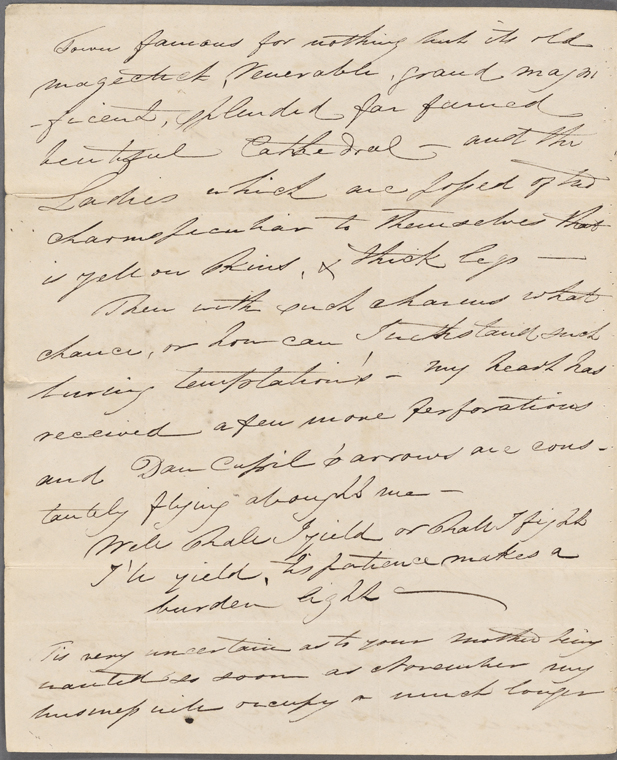 Town famous for nothing but its old
magestick, Venerable, grand magni
-ficent, splendid far famed
beutiful Cathedral — and the
Ladies which are possed of two
charms peculiar to themselves that
is yellow skins, & thick legs —
Then with such charms what
chance, or how can I withstand such
luring temptations — my heart has
received a few more perforations
and Dan Cupid's arrows are cons-
tantly flying abought me —
Well shall I yield or shall I fight
I'll yield, tis patience makes a
burden light —
Tis very uncertain as to your mother being
wanted so soon as November my
business will occupy a much longer